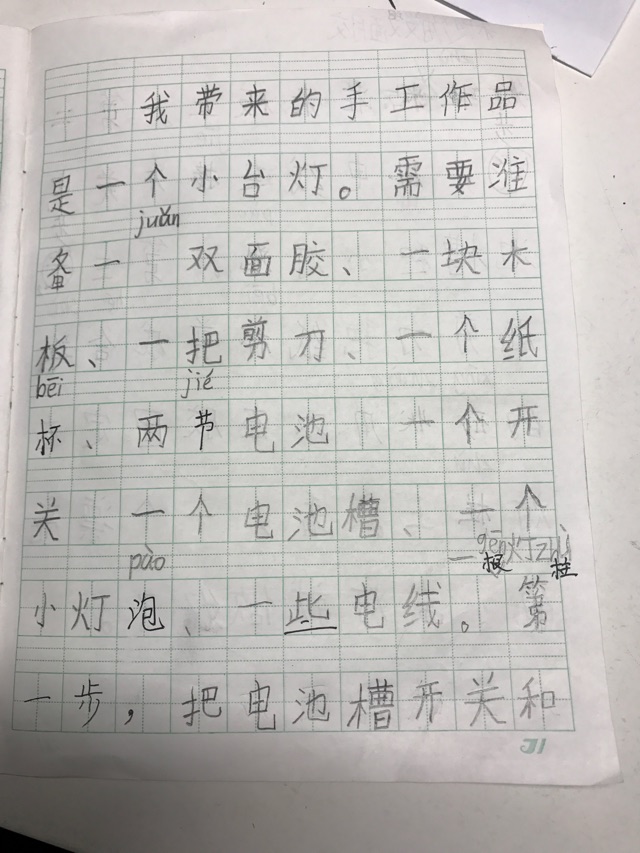 我带来的手工作品
是一个小台灯。需要准
juǎn
备一 双面胶、一块木
板、一把剪刀、一个纸
bēi jié
杯、两节电池 一个开
关 一个电池槽、一个
一根灯柱
gēn zhù
pào
小灯泡、一些电线。第
一步，把电池槽开关和
31